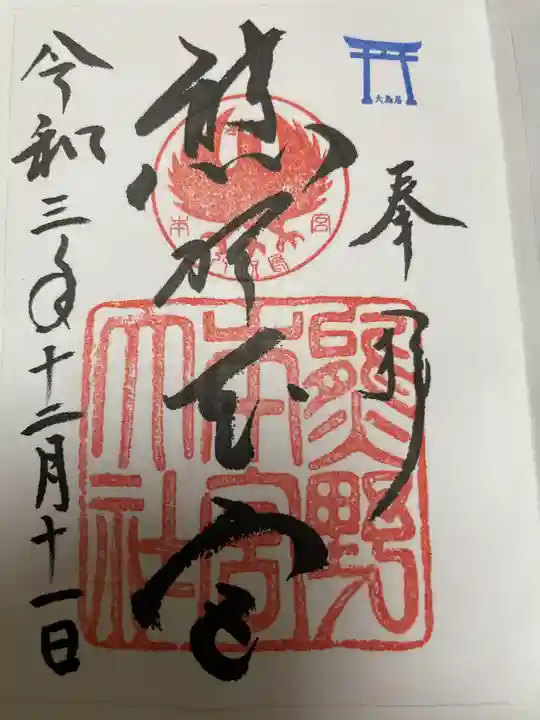 大鳥居
奉拝
熊野本宮
熊野
本宮
大社
令和三年十二月十一日